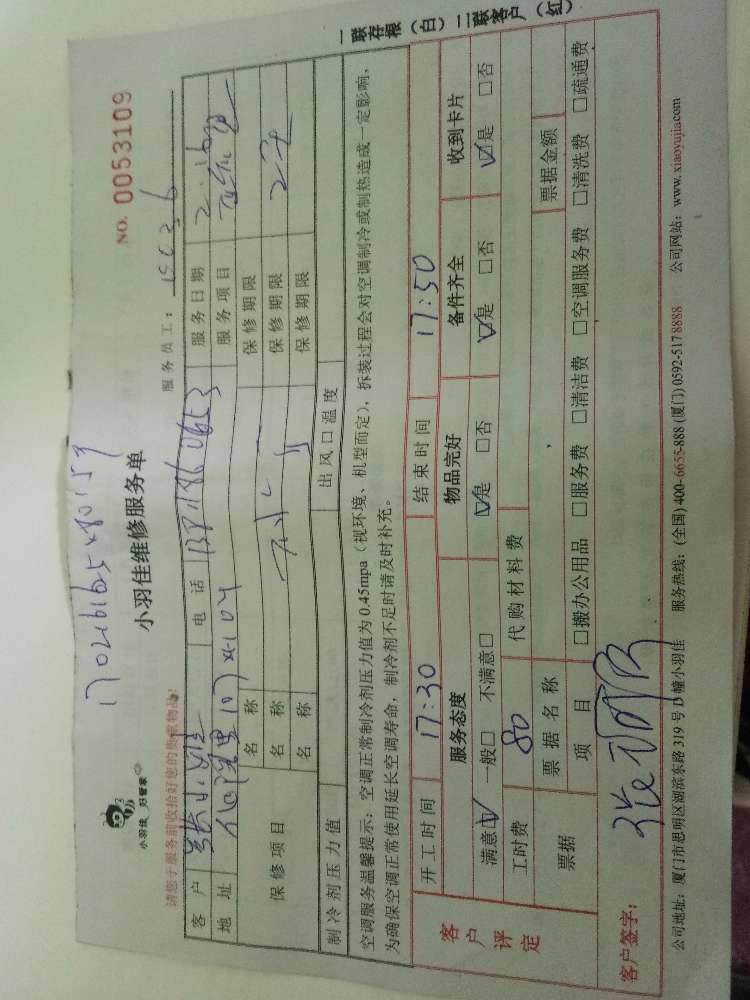 一联存根（白）二联客户（红）
NO. 0053109
小羽佳 好管家
小羽佳维修服务单
请您于服务前收拾好您的贵重物品！
服务员工：
客户 电话 服务日期
地址 服务项目
保修项目 名称 保修期限
名称 保修期限
名称 保修期限
制冷剂压力值 出风口温度
空调服务温馨提示：空调正常制冷剂压力值为 0.45mpa（视环境、机型而定），拆装过程会对空调制冷或制热造成一定影响，
为确保空调正常使用延长空调寿命，制冷剂不足时请及时补充。
客户评定
开工时间 17:30 结束时间 17:50
服务态度 物品完好 备件齐全 收到卡片
满意☑ 一般□ 不满意□ ☑是 □否 ☑是 □否 ☑是 □否
工时费 80 代购材料费
票据 票据名称 票据金额
项目 □搬办公用品 □服务费 □清洁费 □空调服务费 □清洗费 □疏通费
客户签字：
公司地址：厦门市思明区湖滨东路 319 号 D 幢小羽佳 服务热线：(全国) 400-6655-888 (厦门) 0592-5178888 公司网站：www.xiaoyujia.com